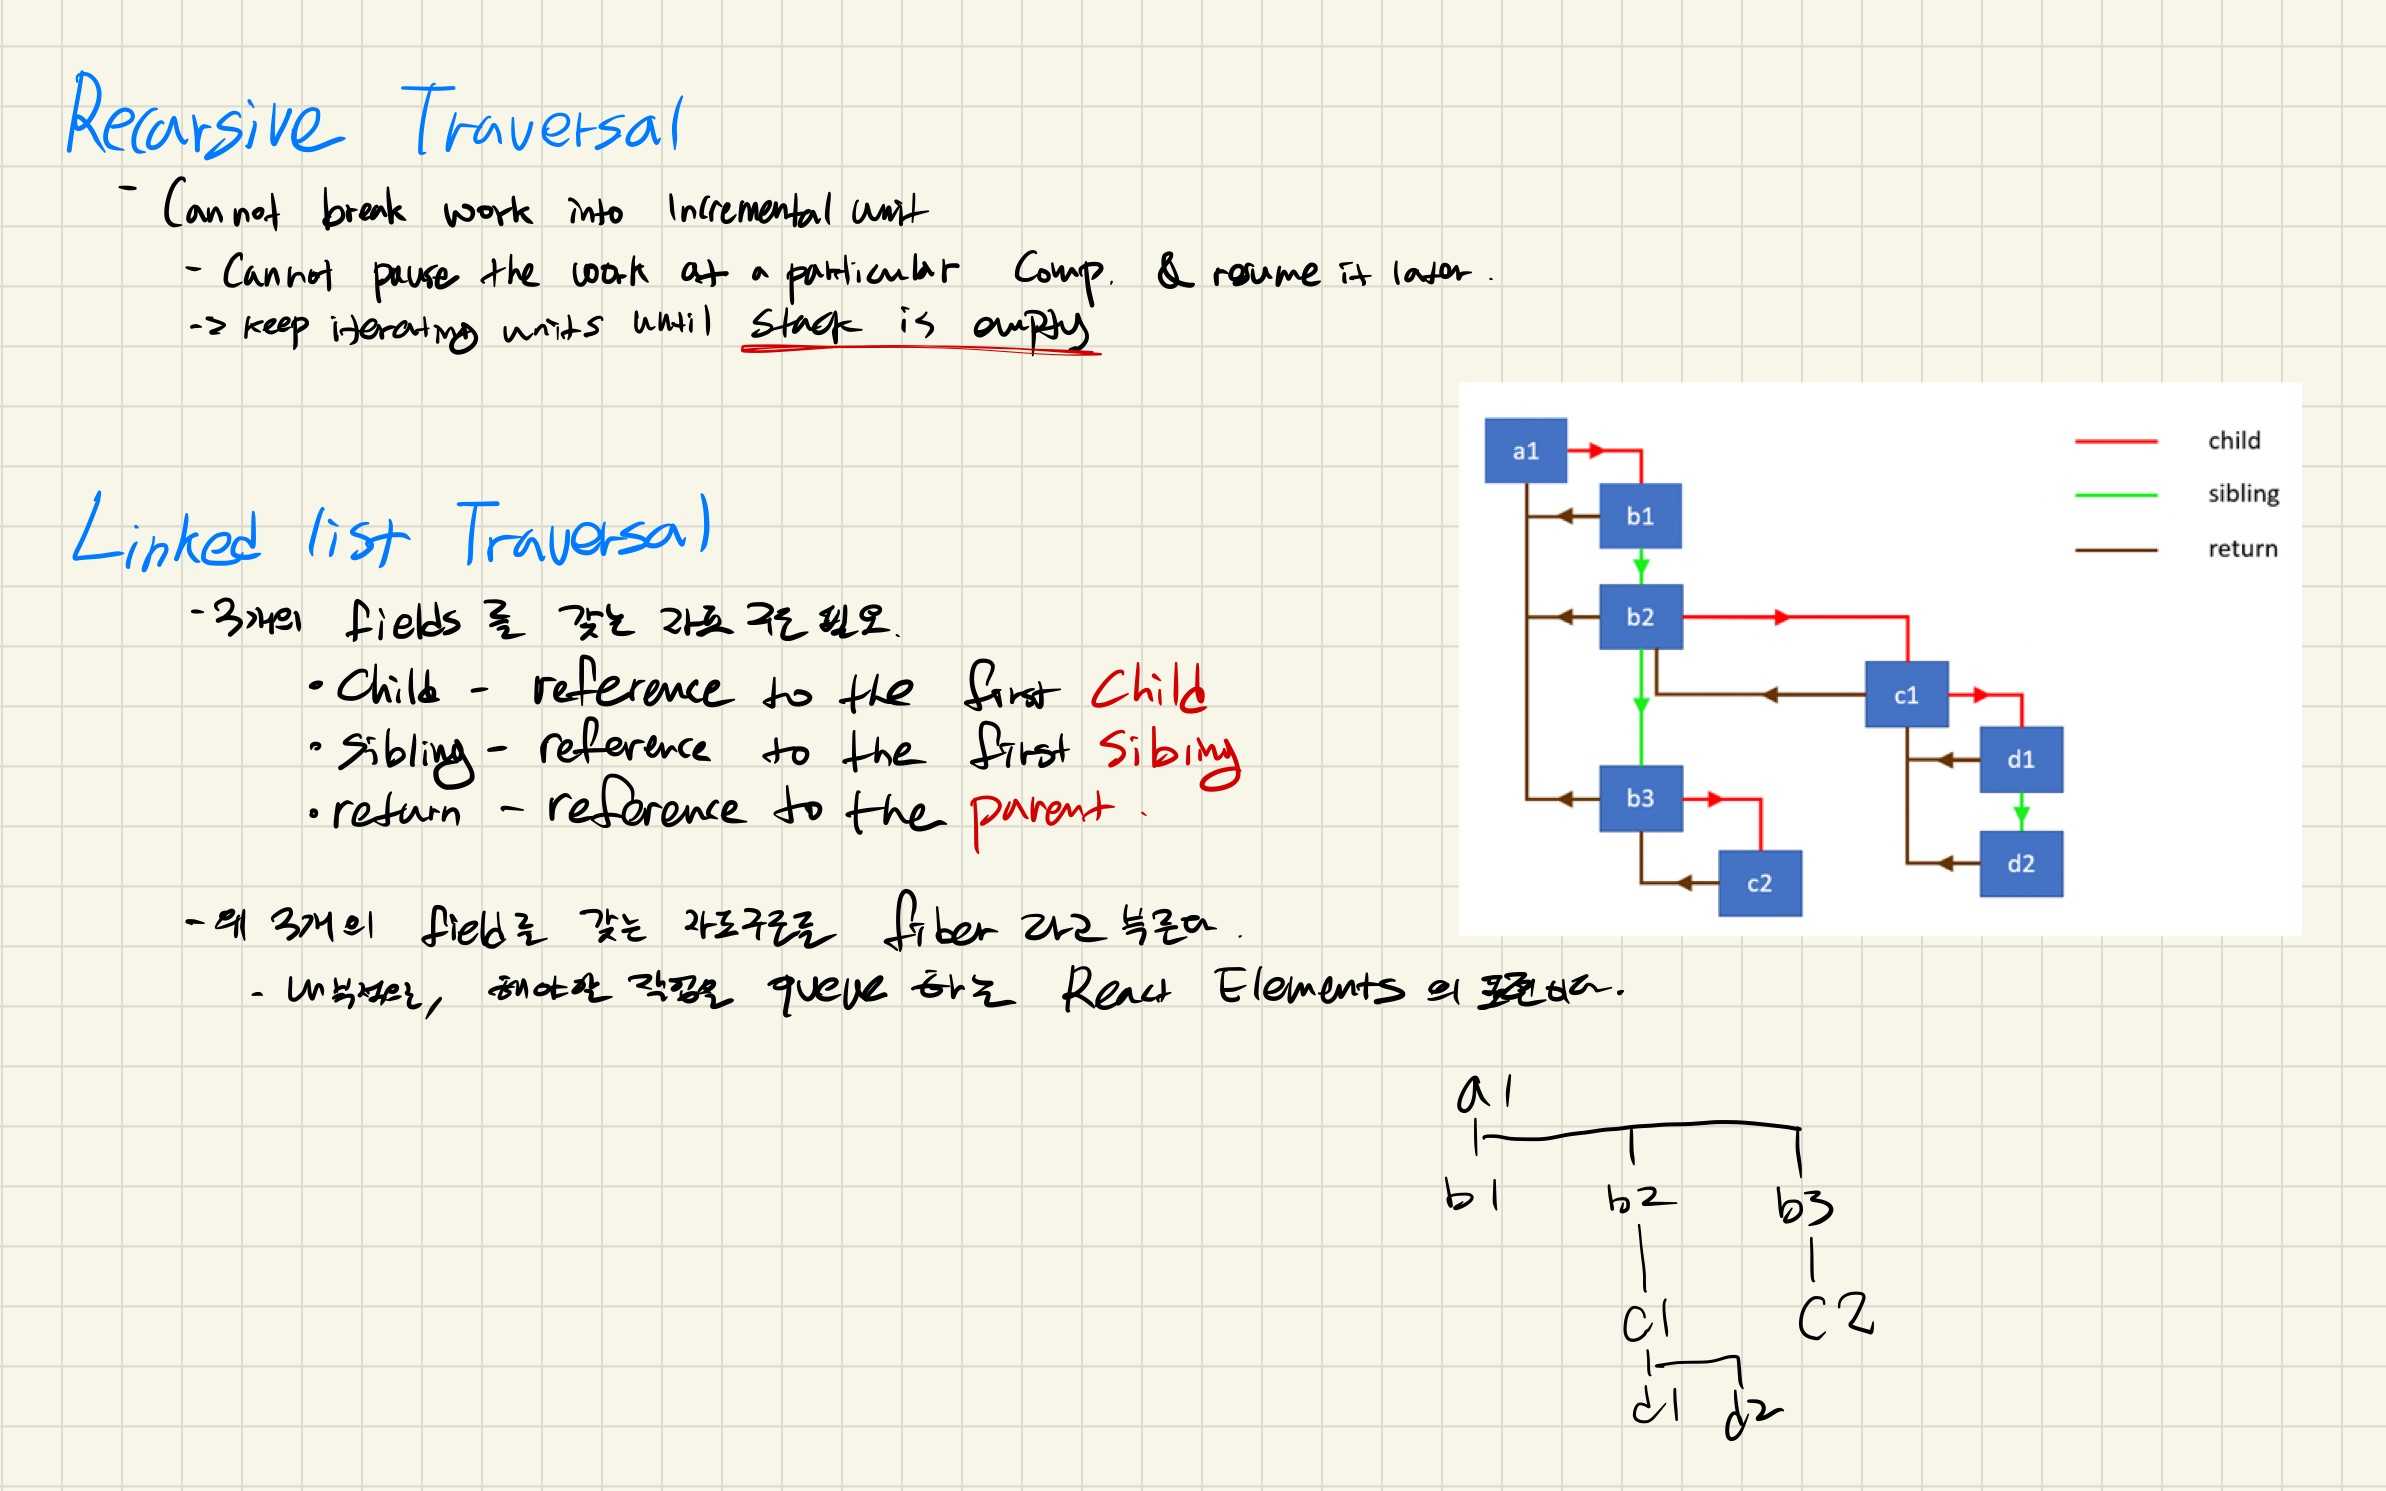 Recarsive Traversal
- Cannot break work into Incremental unit
- Cannot pause the work at a particular Comp. & resume it later.
-> keep iterating units until stack is empty
Linked list Traversal
- 3개의 fields 를 갖는 자료 구조 필요.
• Child - reference to the first Child
• sibling - reference to the first Sibing
• return - reference to the parent.
- 위 3개의 field를 갖는 자료구조를 fiber 라고 부른다.
- 내부적으로, 해야할 작업을 queue 하는 React Elements 의 표현이다.
a1
b1
b2
b3
c1
c2
d1
d2
child
sibling
return
a1
b1 b2 b3
C1 C2
d1 d2